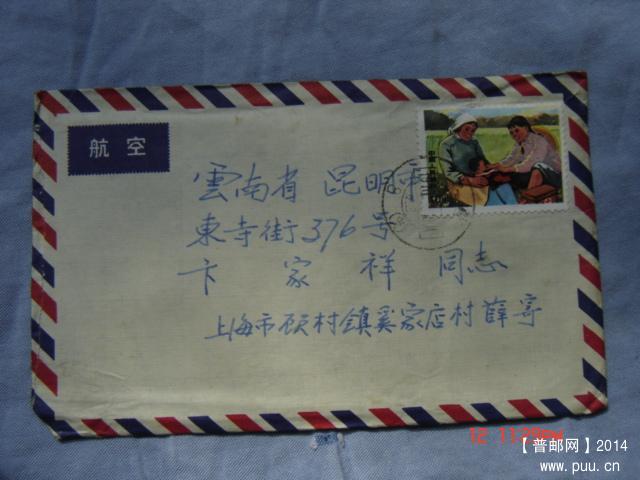 航空
雲南省 昆明市
東寺街376号
卞家祥 同志
上海市顾村镇奚家店村薛寄
12 11:29PM
【普邮网】2014
www.puu.cn